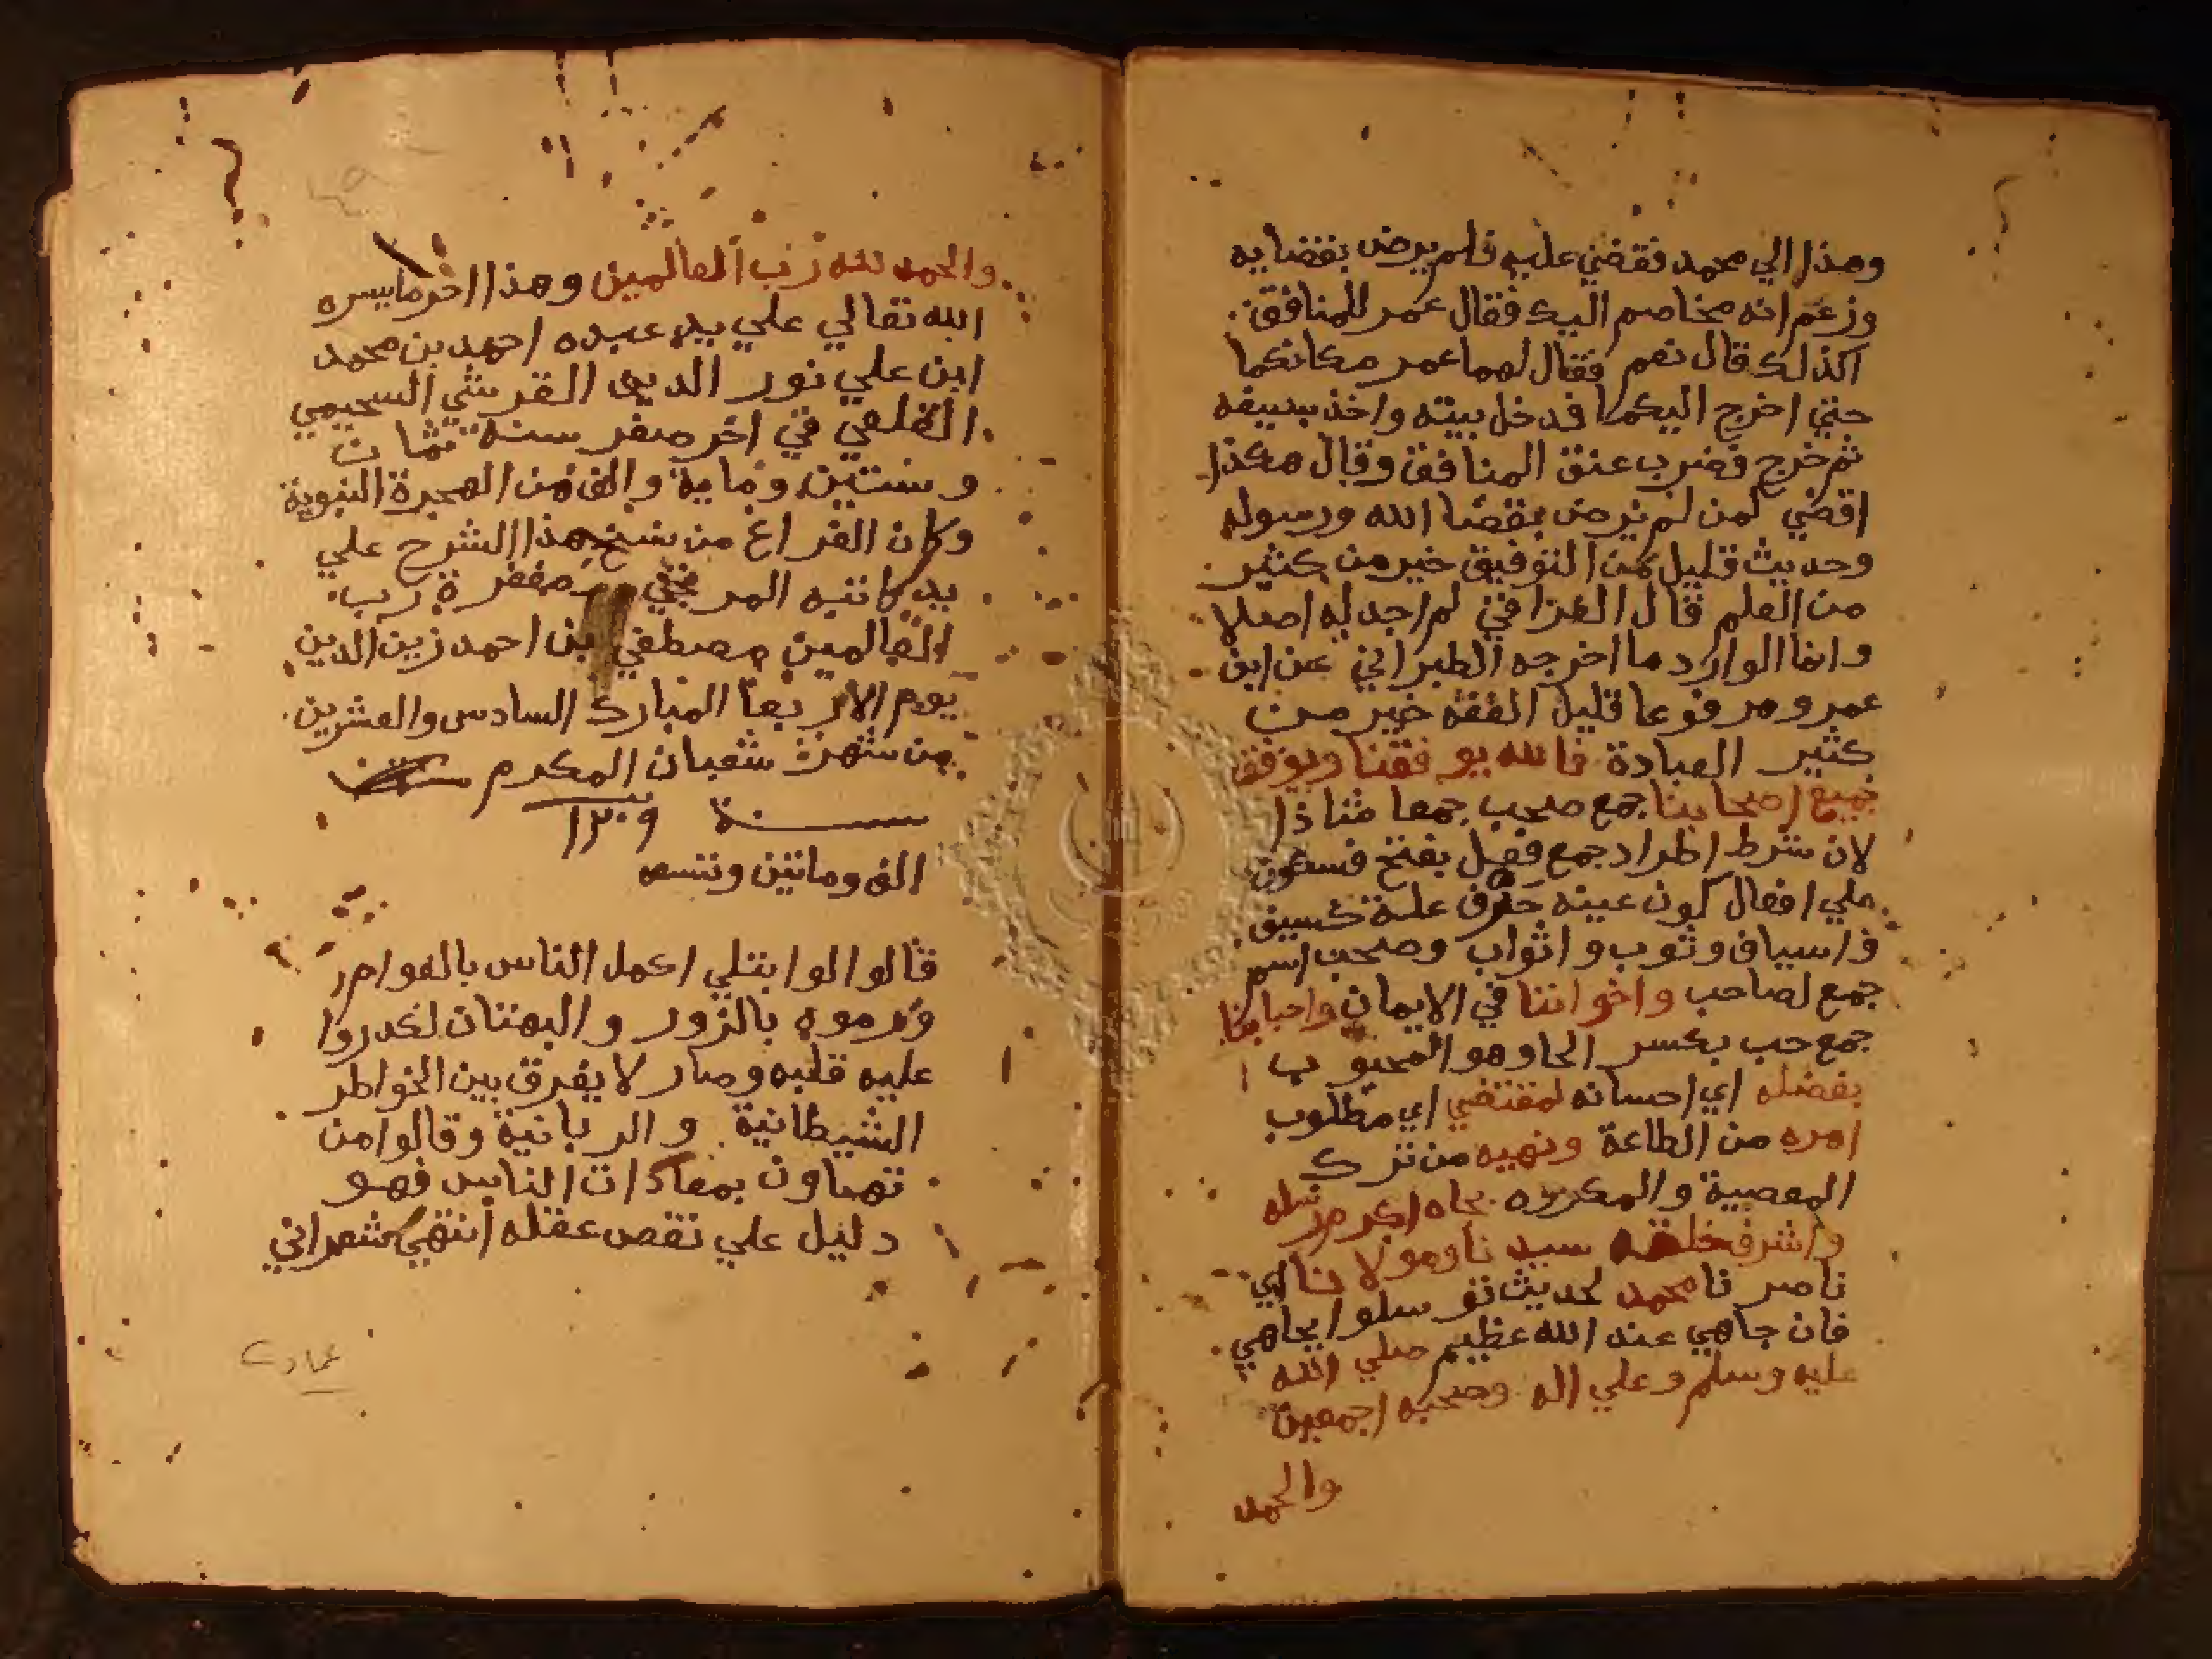 وهذا الي محمد فقضي عليه فلم يرض بقضايه
وزعم انه مخاصم اليك فقال عمر للمنافق
اكذلك قال نعم فقال لهما عمر مكانكما
حتي اخرج اليكما فدخل بيته واخذ بسيفه
ثم خرج فضرب عنق المنافق وقال هكذا
اقضي لمن لم يرض بقضا الله ورسوله
وحديث قليل من التوفيق خير من كثير
من العلم قال العراقي لم اجد له اصلا
وانما الوارد ما اخرجه الطبراني عن ابن
عمرو مرفوعا قليل الفقه خير من
كثير العبادة فالله يوفقنا ويوفق
جميع اصحابنا جمع صحب جمعا شاذا
لان شرط اطراد جمع فعل بفتح فسكون
علي افعال كون عينه حرف علة كسيف
واسياف وثوب واثواب وصحب اسم
جمع لصاحب واخواننا في الايمان واحبابنا
جمع حب بكسر الحا وهو المحبوب
بفضله اي احسانه لمقتضي اي مطلوب
امره من الطاعة ونهيه من ترك
المعصية والمكروه بجاه اكرم رسله
واشرف خلقه سيدنا ومولانا اي
ناصرنا محمد لحديث توسلوا بجاهي
فان جاهي عند الله عظيم صلي الله
عليه وسلم وعلي اله وصحبه اجمعين
والحمد
والحمد لله رب العالمين وهذا اخر ما يسره
الله تعالي علي يد عبده احمد بن محمد
ابن علي نور الدين القرشي السحيمي
القلعي في اخر صفر سنة ثمان
وستين وماية والف من الهجرة النبوية
وكان الفراغ من نسخ هذا الشرح علي
يد كاتبه المرتجي مغفرة رب
العالمين مصطفي بن احمد زين الدين
يوم الاربعا المبارك السادس والعشرين
من شهر شعبان المكرم
سنة ١٢٠٩
الف وماتين وتسعه
قالوا لوا بتلي اكمل الناس بالعوام
ورموه بالزور والبهتان لكدروا
عليه قلبه وصار لا يفرق بين الخواطر
الشيطانية والربانية وقالوا من
تهاون بمعادات الناس فهو
دليل علي نقص عقله انتهي شعراني